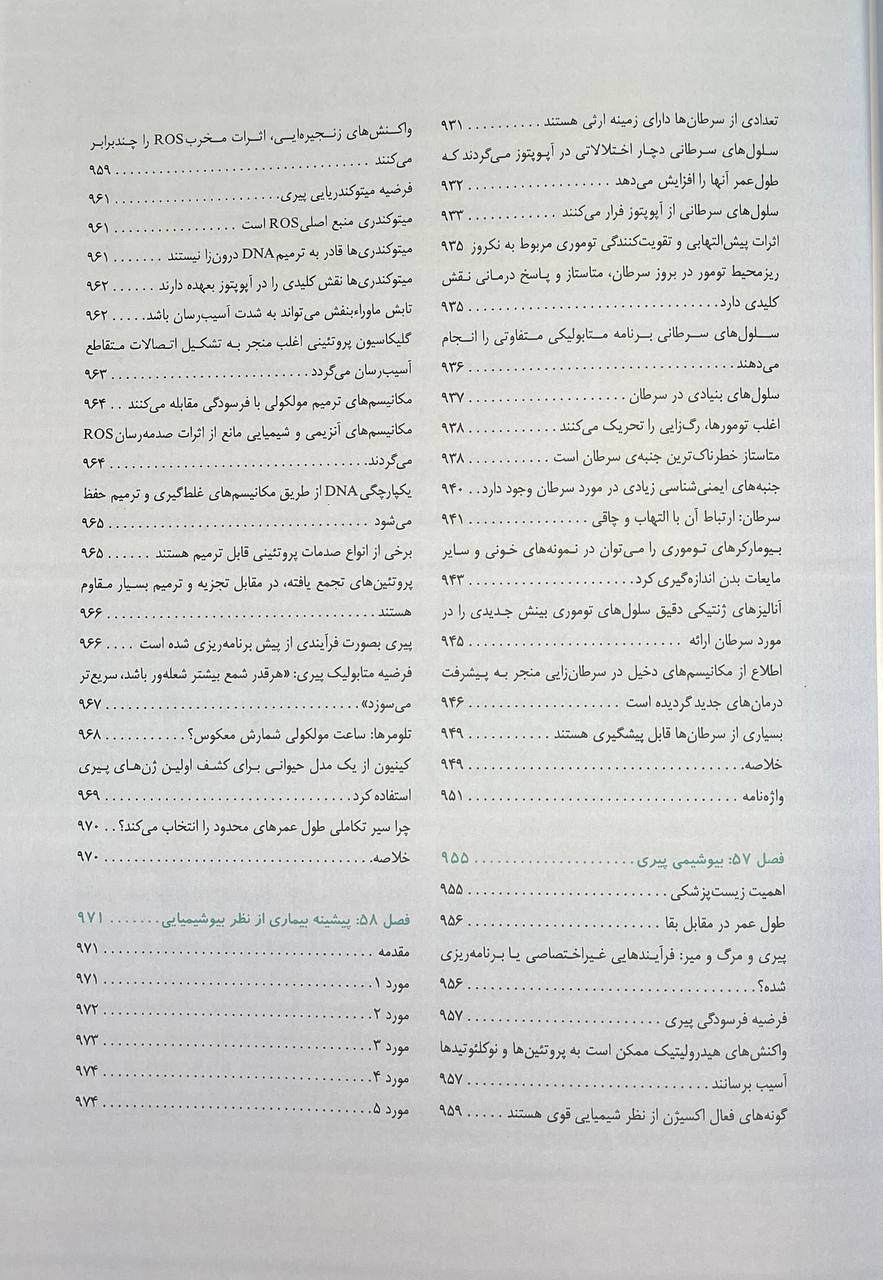 تعدادی از سرطان‌ها دارای زمینه ارثی هستند .......... ۹۳۱
سلول‌های سرطانی دچار اختلالاتی در آپوپتوز می‌گردند که
طول‌عمر آنها را افزایش می‌دهد .................. ۹۳۲
سلول‌های سرطانی از آپوپتوز فرار می‌کنند ............ ۹۳۳
اثرات پیش‌التهابی و تقویت‌کنندگی توموری مربوط به نکروز ۹۳۵
ریزمحیط تومور در بروز سرطان، متاستاز و پاسخ درمانی نقش
کلیدی دارد.................................. ۹۳۵
سلول‌های سرطانی برنامه متابولیکی متفاوتی را انجام
می‌دهند.................................... ۹۳۶
سلول‌های بنیادی در سرطان ..................... ۹۳۷
اغلب تومورها، رگ‌زایی را تحریک می‌کنند ............ ۹۳۸
متاستاز خطرناک‌ترین جنبه‌ی سرطان است ........... ۹۳۸
جنبه‌های ایمنی‌شناسی زیادی در مورد سرطان وجود دارد.. ۹۴۰
سرطان: ارتباط آن با التهاب و چاقی ............... ۹۴۱
بیومارکرهای توموری را می‌توان در نمونه‌های خونی و سایر
مایعات بدن اندازه‌گیری کرد...................... ۹۴۳
آنالیزهای ژنتیکی دقیق سلول‌های توموری بینش جدیدی را در
مورد سرطان ارائه ............................ ۹۴۵
اطلاع از مکانیسم‌های دخیل در سرطان‌زایی منجر به پیشرفت
درمان‌های جدید گردیده است .................... ۹۴۶
بسیاری از سرطان‌ها قابل پیشگیری هستند ........... ۹۴۹
خلاصه..................................... ۹۴۹
واژه‌نامه ................................... ۹۵۱
فصل ۵۷: بیوشیمی پیری..................... ۹۵۵
اهمیت زیست‌پزشکی........................... ۹۵۵
طول عمر در مقابل بقا ......................... ۹۵۶
پیری و مرگ و میر: فرآیندهایی غیراختصاصی یا برنامه‌ریزی
شده؟..................................... ۹۵۶
فرضیه فرسودگی پیری ......................... ۹۵۷
واکنش‌های هیدرولیتیک ممکن است به پروتئین‌ها و نوکلئوتیدها
آسیب برسانند................................ ۹۵۷
گونه‌های فعال اکسیژن از نظر شیمیایی قوی هستند ..... ۹۵۹
واکنش‌های زنجیره‌ایی، اثرات مخرب ROS را چندبرابر
می‌کنند ................................... ۹۵۹
فرضیه میتوکندریایی پیری....................... ۹۶۱
میتوکندری منبع اصلی ROS است ................ ۹۶۱
میتوکندری‌ها قادر به ترمیم DNA درون‌زا نیستند ....... ۹۶۱
میتوکندری‌ها نقش کلیدی را در آپوپتوز بعهده دارند ...... ۹۶۲
تابش ماوراءبنفش می‌تواند به شدت آسیب‌رسان باشد..... ۹۶۲
گلیکاسیون پروتئینی اغلب منجر به تشکیل اتصالات متقاطع
آسیب‌رسان می‌گردد ........................... ۹۶۳
مکانیسم‌های ترمیم مولکولی با فرسودگی مقابله می‌کنند .. ۹۶۴
مکانیسم‌های آنزیمی و شیمیایی مانع از اثرات صدمه‌رسان ROS
می‌گردند................................... ۹۶۴
یکپارچگی DNA از طریق مکانیسم‌های غلط‌گیری و ترمیم حفظ
می‌شود ................................... ۹۶۵
برخی از انواع صدمات پروتئینی قابل ترمیم هستند ...... ۹۶۵
پروتئین‌های تجمع یافته، در مقابل تجزیه و ترمیم بسیار مقاوم
هستند .................................... ۹۶۶
پیری بصورت فرآیندی از پیش برنامه‌ریزی شده است .... ۹۶۶
فرضیه متابولیک پیری: «هرقدر شمع بیشتر شعله‌ور باشد، سریع‌تر
می‌سوزد».................................. ۹۶۷
تلومرها: ساعت مولکولی شمارش معکوس؟........... ۹۶۸
کینیون از یک مدل حیوانی برای کشف اولین ژن‌های پیری
استفاده کرد................................. ۹۶۹
چرا سیر تکاملی طول عمرهای محدود را انتخاب می‌کند؟.. ۹۷۰
خلاصه..................................... ۹۷۰
فصل ۵۸: پیشینه بیماری از نظر بیوشیمیایی....... ۹۷۱
مقدمه .................................... ۹۷۱
مورد ۱.................................... ۹۷۱
مورد ۲.................................... ۹۷۲
مورد ۳.................................... ۹۷۳
مورد ۴.................................... ۹۷۴
مورد ۵.................................... ۹۷۴